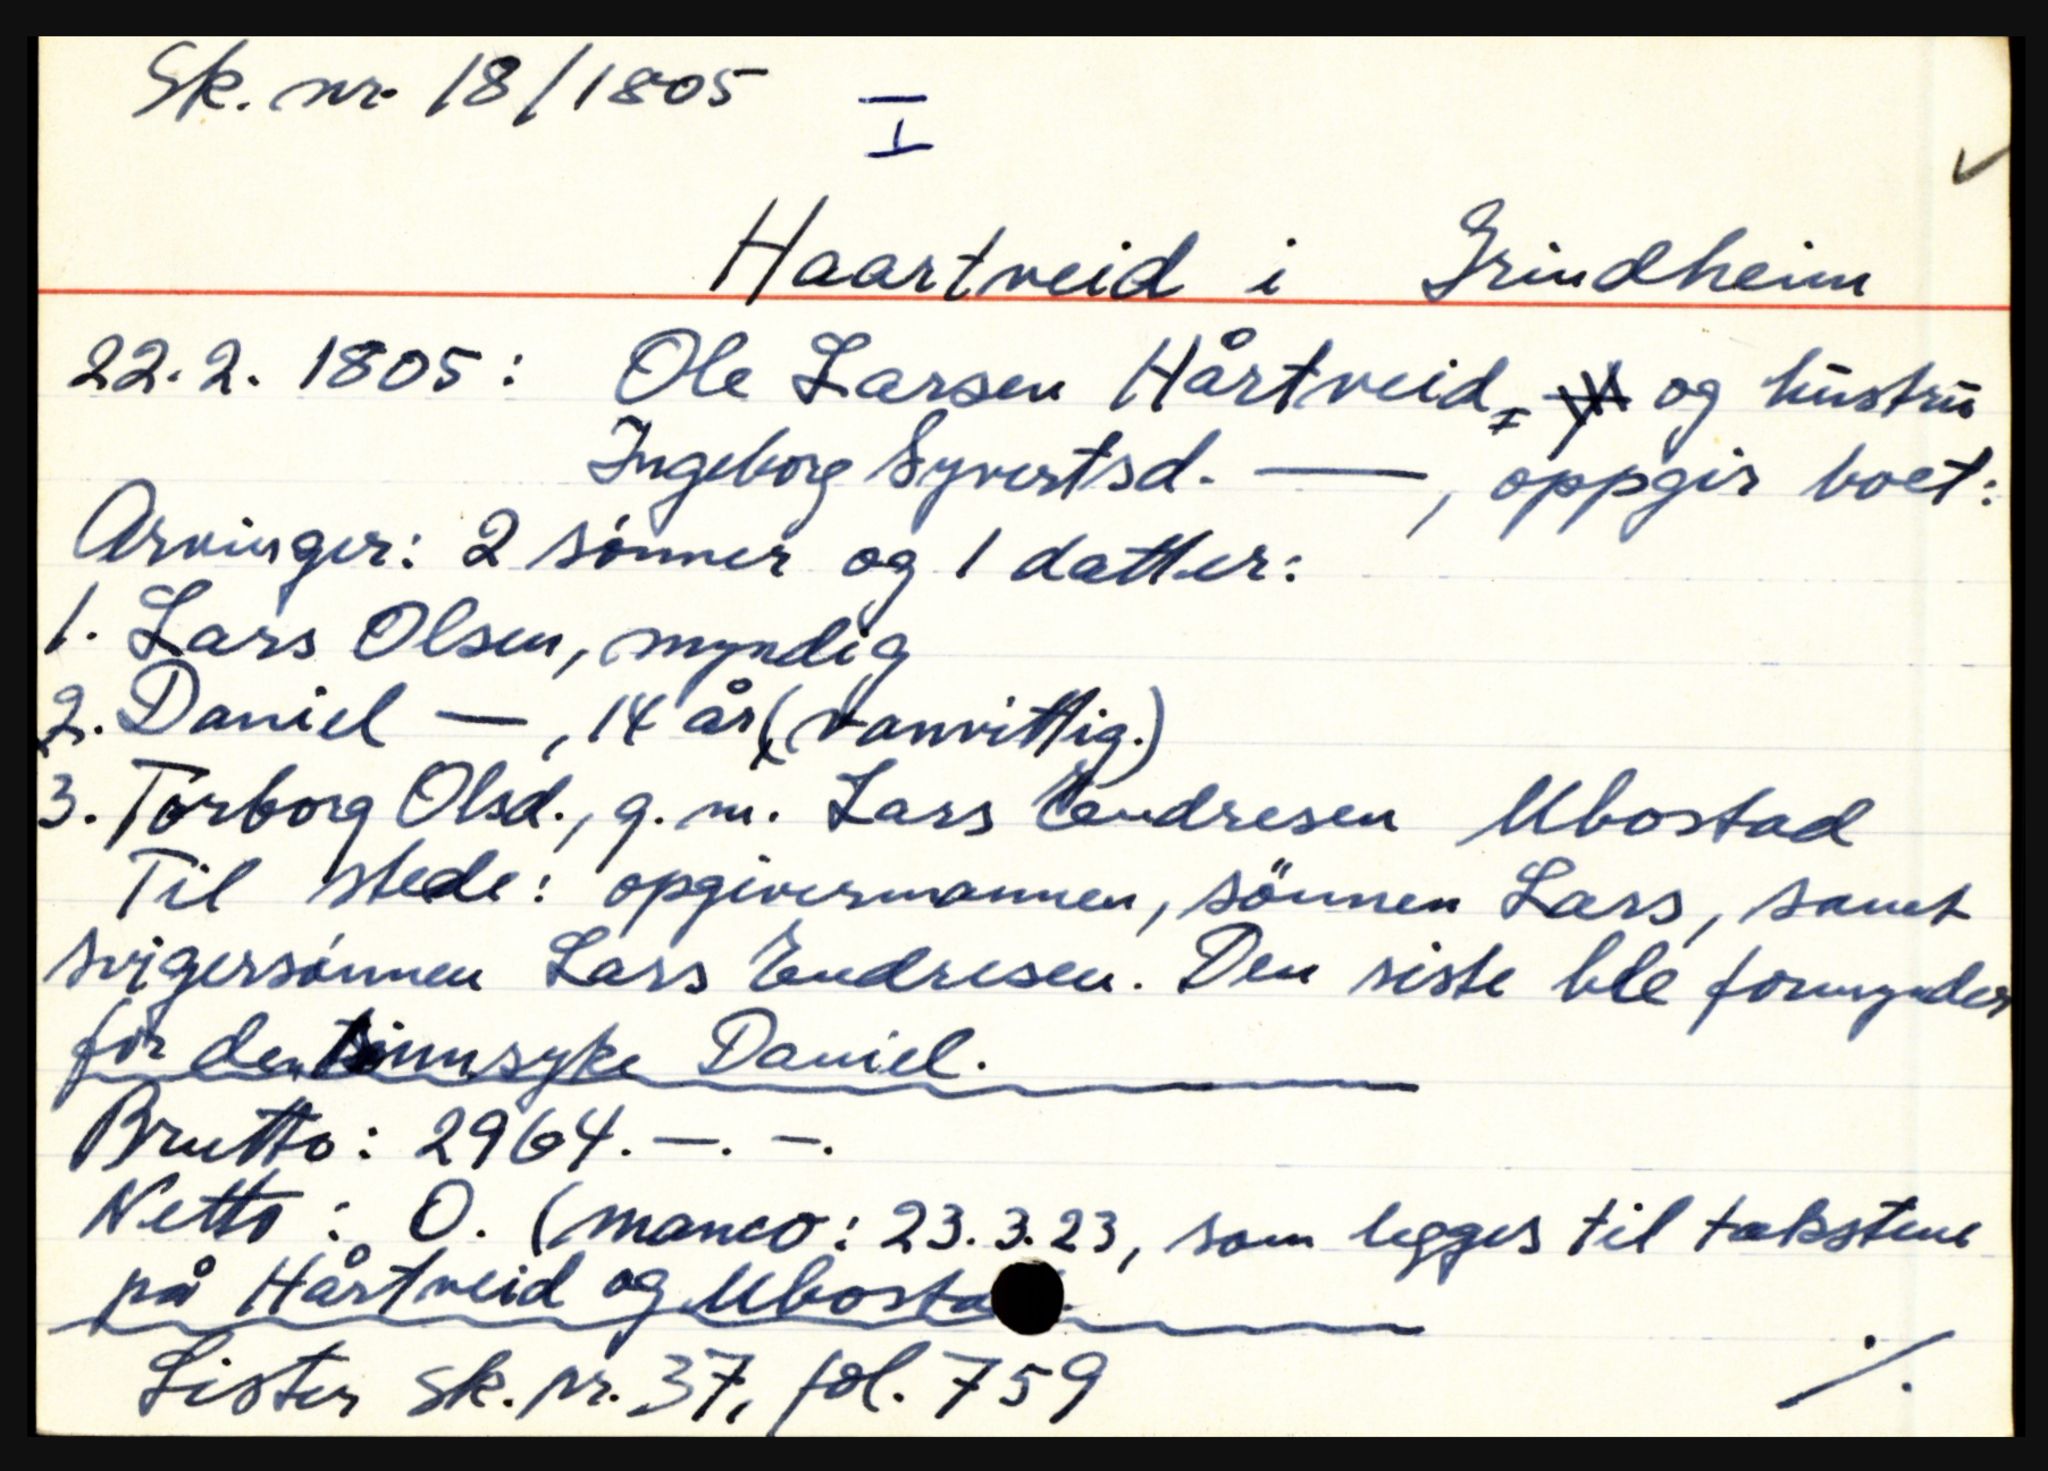 Sk. nr. 18/1805 I
Haartveid i Grindheim
22.2. 1805: Ole Larsen Hårtveid, og hustru
Ingeborg Syvertsd. —, oppgir boet:
Arvinger: 2 sønner og 1 datter:
1. Lars Olsen, myndig
2. Daniel —, 14 år (vanvittig.)
3. Torborg Olsd., g. m. Lars Endresen Ubostad
Til stede: opgivermannen, sönnen Lars, samt
svigersønnen Lars Endresen. Den siste ble formynder
for den sinnsyke Daniel.
Brutto: 2964. —. —.
Netto: 0. (manco: 23.3.23, som legges til takstene
på Hårtveid og Ubostad.
Lister sk. pr. 37, fol. 759
./.